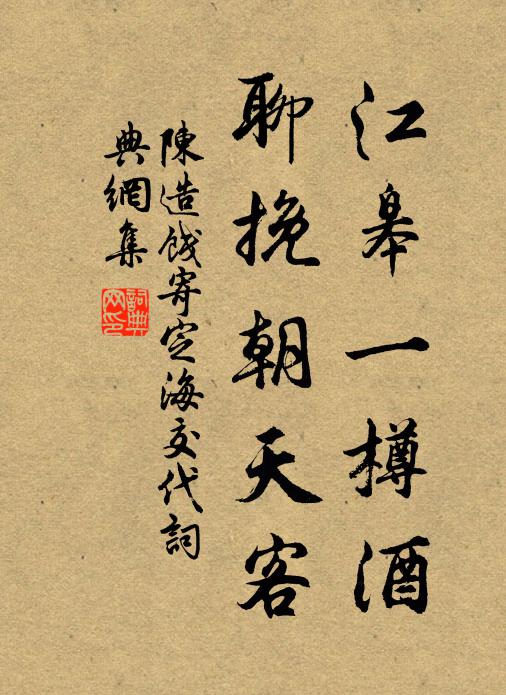 江皋一樽酒
聊挽朝天客
陳造餞寄定海交代詞
典網集
詞典網印